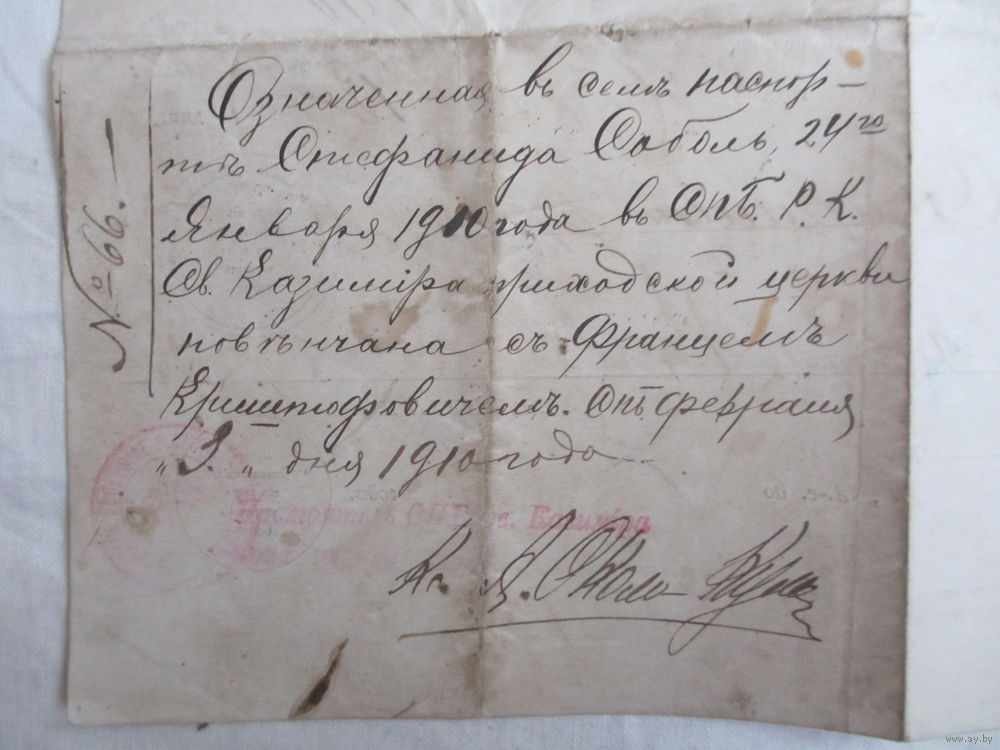 № 66. —
Означенная въ семъ паспор–
тѣ Стефанида Соболь, 24го
Января 1910 года въ СПБ. Р. К.
Св. Казимiра приходской церкви
повѣнчана съ Францемъ
Криштофовичемъ. СПБ февраля
„ 3. „ дня 1910 года
Настоятель СПБ. св. Казимiра
Кс.
www.ay.by